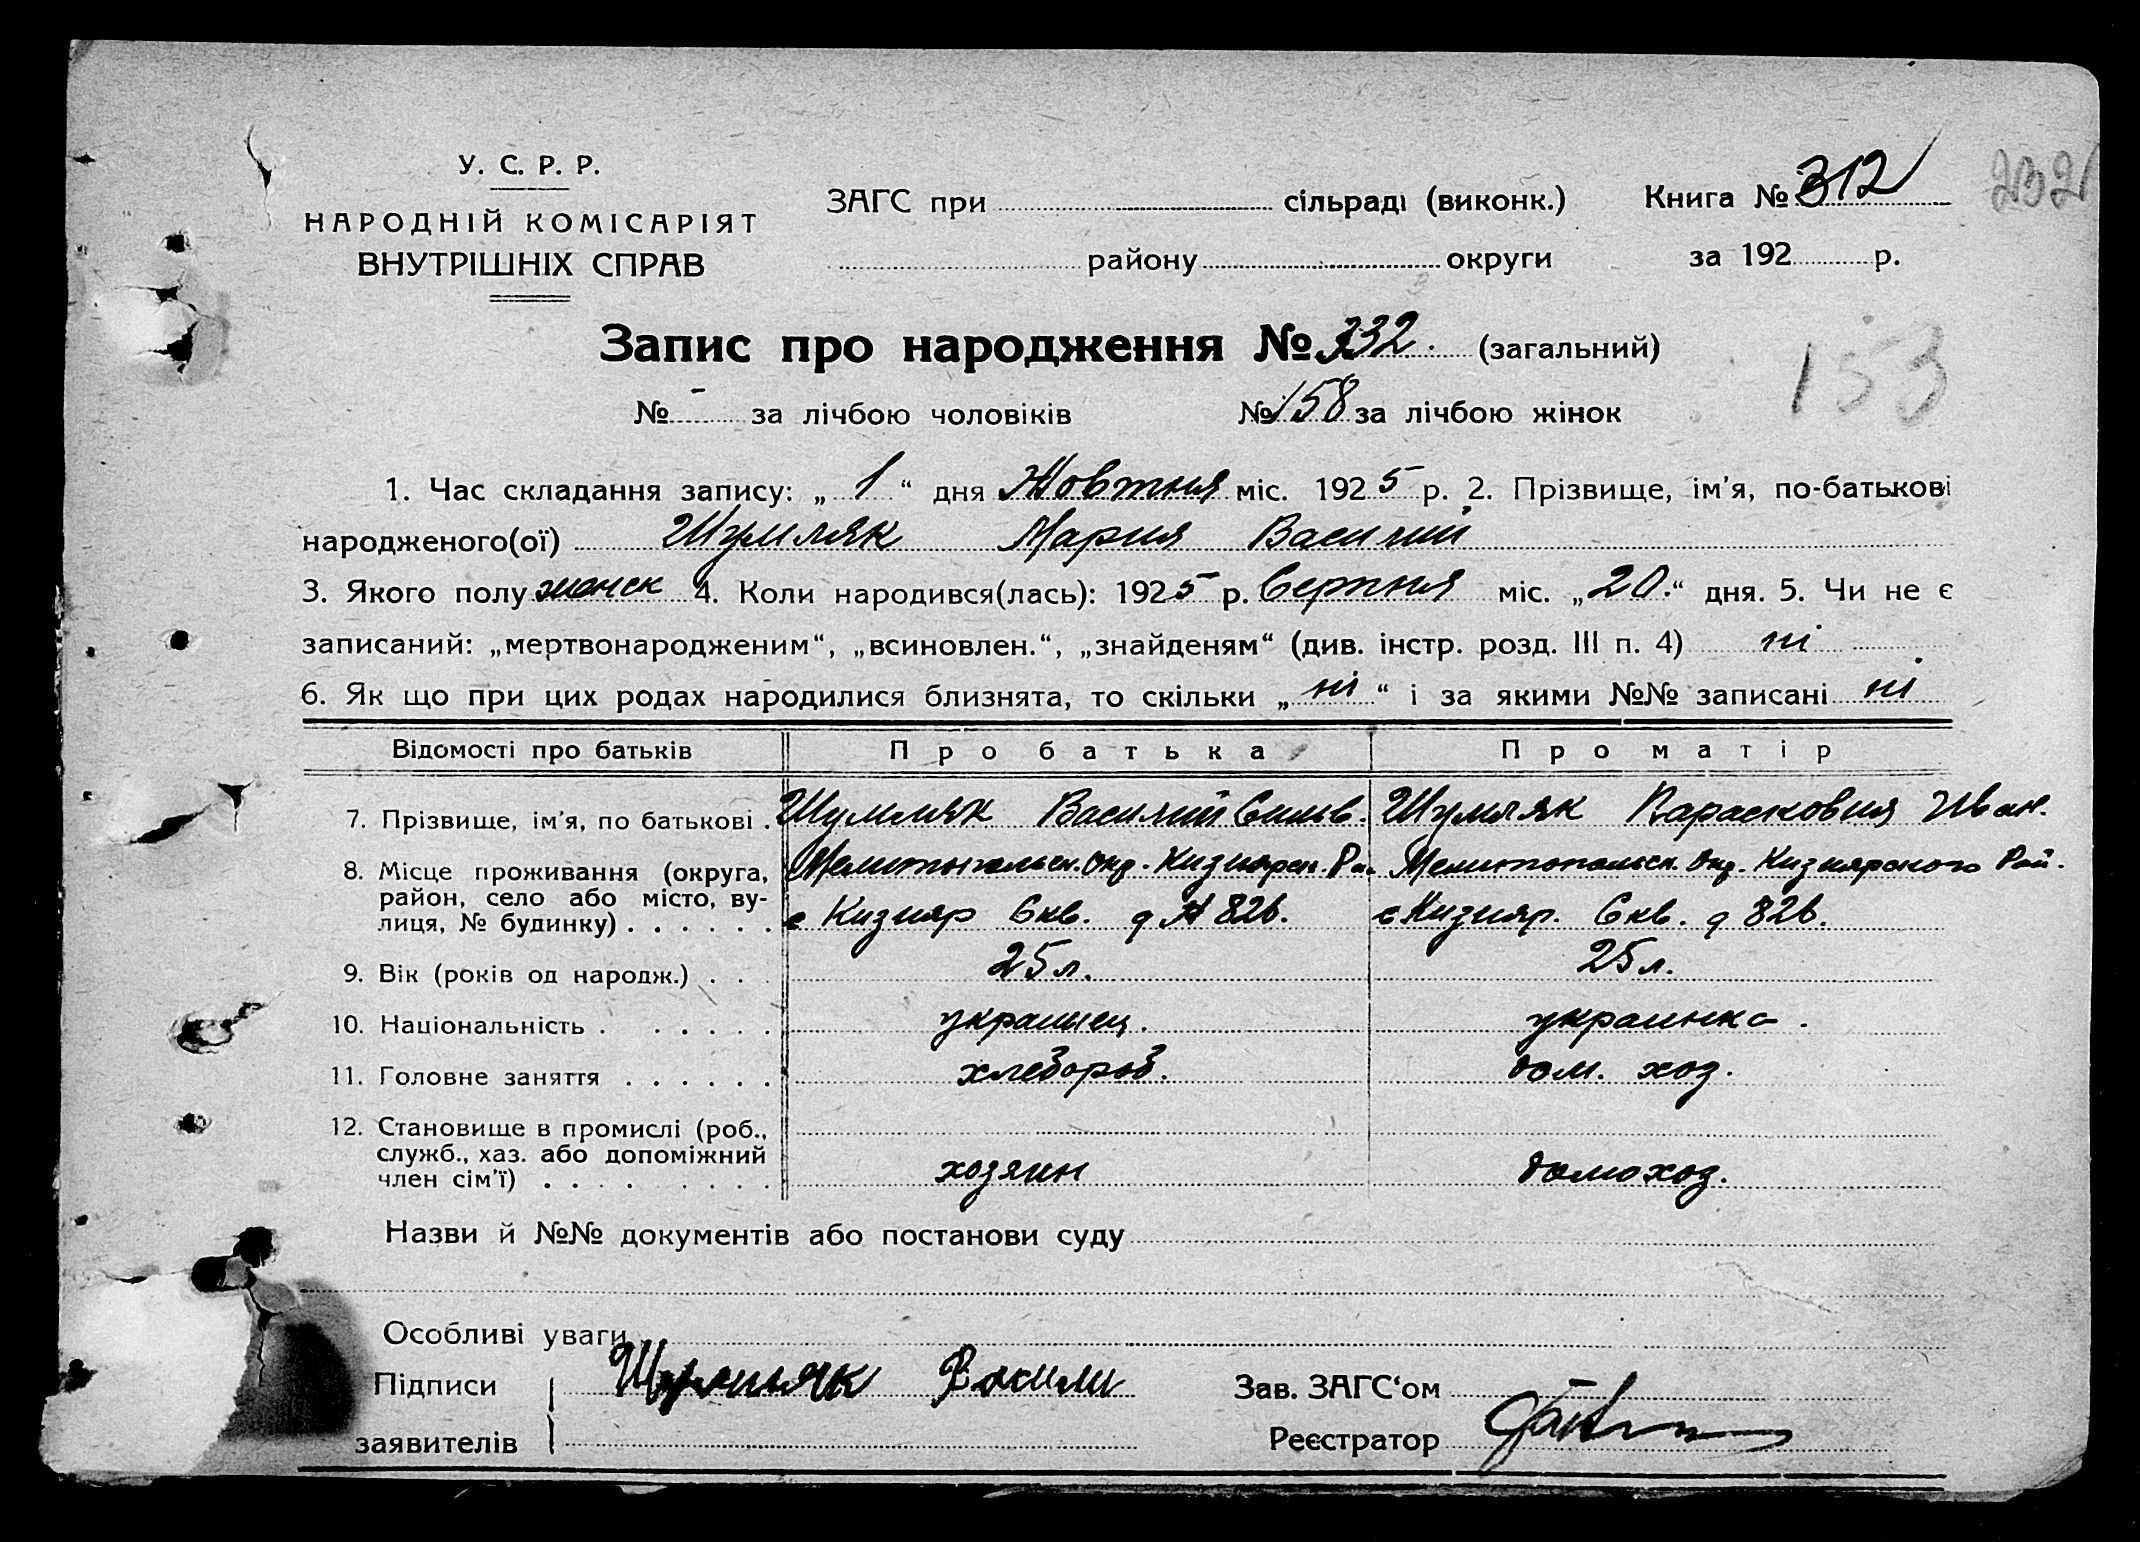 У. С. Р. Р.
НАРОДНІЙ КОМІСАРІЯТ
ВНУТРІШНІХ СПРАВ
ЗАГС при сільраді (виконк.)
району округи
Книга № 312
за 192 р.
232
Запис про народження № 332. (загальний)
№ - за лічбою чоловіків № 158 за лічбою жінок
153
1. Час складання запису: „ 1 “ дня Жовтня міс. 1925 р. 2. Прізвище, ім'я, по-батькові
народженого(ої) Шумляк Мария Василий
3. Якого полу женск 4. Коли народився(лась): 1925 р. Серпня міс. „20.“ дня. 5. Чи не є
записаний: „мертвонародженим“, „всиновлен.“, „знайденям“ (див. інстр. розд. III п. 4) ні
6. Як що при цих родах народилися близнята, то скільки „ ні “ і за якими №№ записані ні
Відомості про батьків Про батька Про матір
7. Прізвище, ім'я, по батькові . Шумляк Василий Сильв. Шумляк Парасковия Иван.
8. Місце проживання (округа, район, село або місто, вулиця, № будинку) . . . . . .
Мелитопольск. Окр. Кизиярск. Ра. Мелитопольск. Окр. Кизиярского Рай.
с Кизияр 6 кв. д № 82в. с Кизияр. 6 кв. д 82в.
9. Вік (років од народж.) . . . 25 л. 25 л.
10. Національність . . . . . . украинец. украинка.
11. Головне заняття . . . . . . хлебороб. дом. хоз.
12. Становище в промислі (роб., служб., хаз. або допоміжний член сім'ї) . . . . . . . . хозяин домохоз.
Назви й №№ документів або постанови суду
Особливі уваги
Підписи Шумляк Васили Зав. ЗАГС‘ом
заявителів Реєстратор